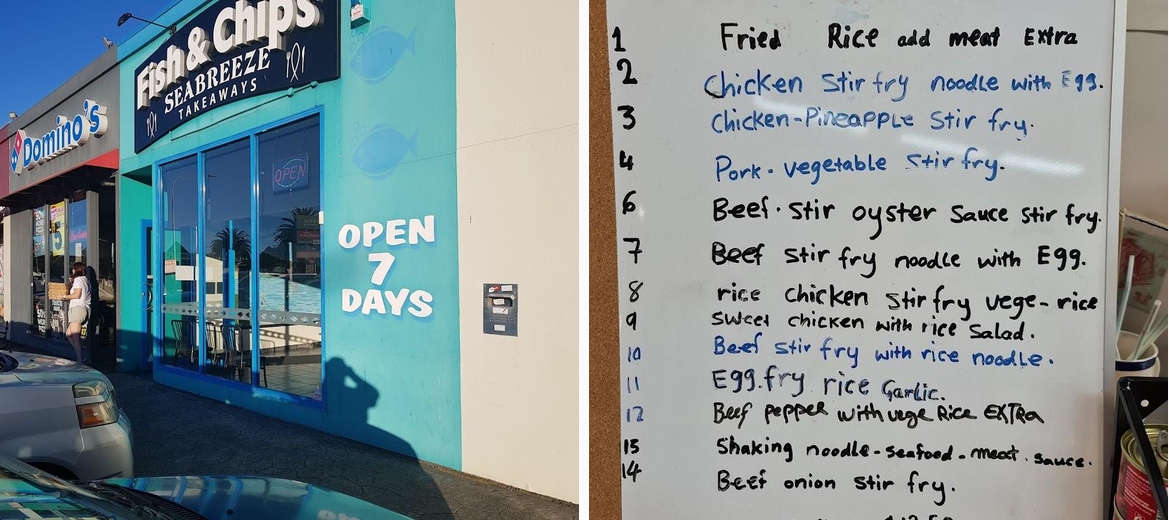 Fish & Chips
SEABREEZE
TAKEAWAYS
Domino's
OPEN
OPEN
7
DAYS
1 Fried Rice add meat Extra
2 Chicken Stir fry noodle with Egg.
3 Chicken-Pineapple Stir fry.
4 Pork. vegetable Stir fry.
6 Beef. stir oyster Sauce stir fry.
7 Beef stir fry noodle with Egg.
8 rice chicken stir fry vege-rice
9 sweet chicken with rice Salad.
10 Beef stir fry with rice noodle.
11 Egg.fry rice Garlic.
12 Beef pepper with vege Rice EXTRa
15 Shaking noodle-seafood-meat. sauce.
14 Beef onion Stir fry.